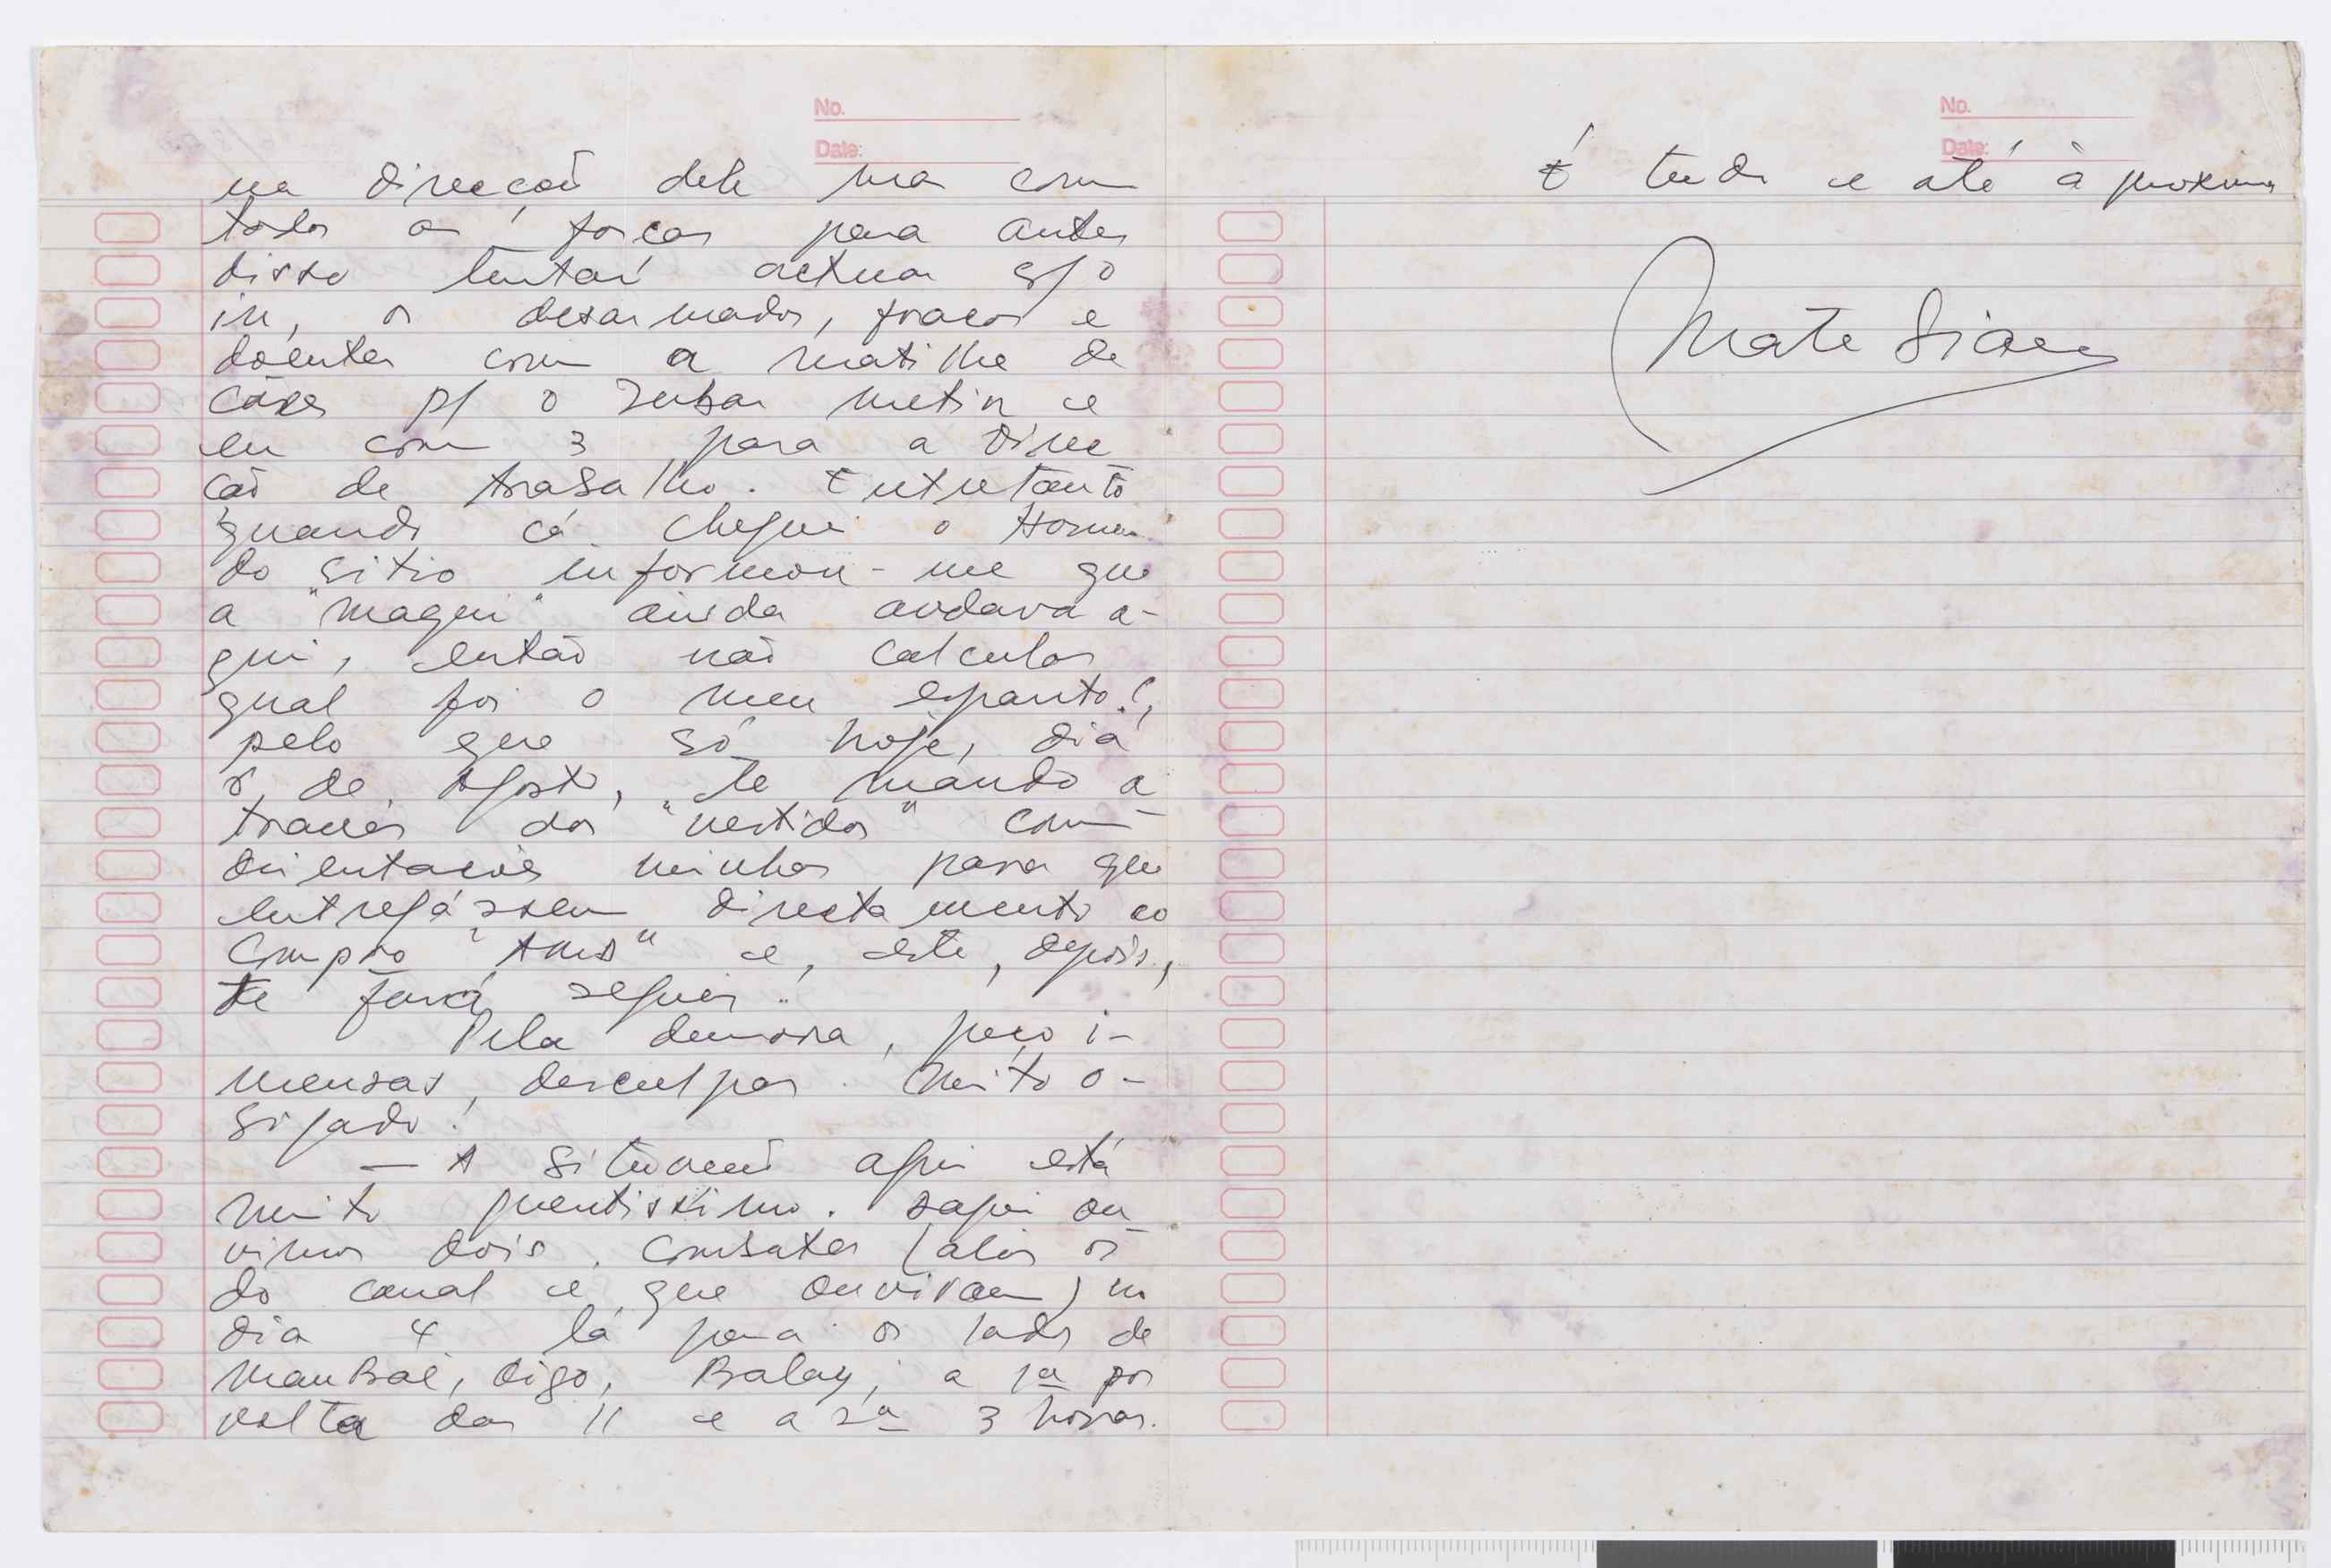 No.
Date:
na direcção dele mas com
todas as forças para antes
disso tentar actuar s/ o
in, os desarmados, fracos e
doentes com a matilha de
cães p/ o Zubar metin e
eu com 3 para a direc
ção de trabalho. Entretanto
quando cá cheguei o Homem
do sitio informou-me que
a "maqui" ainda andava a-
qui, então não calculas
qual foi o meu espanto!,
pelo que só hoje, dia
8 de Agosto, te mando a
través dos "vestidos" com
orientações minhas para que
entregássem directamente ao
Compro e, este, depois,
te fará seguir.
Pela demora, peço i-
mensas, desculpas. Muito o-
bigado!
— A situação aqui está
muito quentissimo. Daqui ou
vimos dois combates (aliás os
do canal e que ouviram) no
dia 4 lá para os lados de
MauBai, digo, Balay, a 1ª por
volta das 11 e a 2ª 3 horas.
No.
Date:
É tudo e até à proxima
Mate Bian